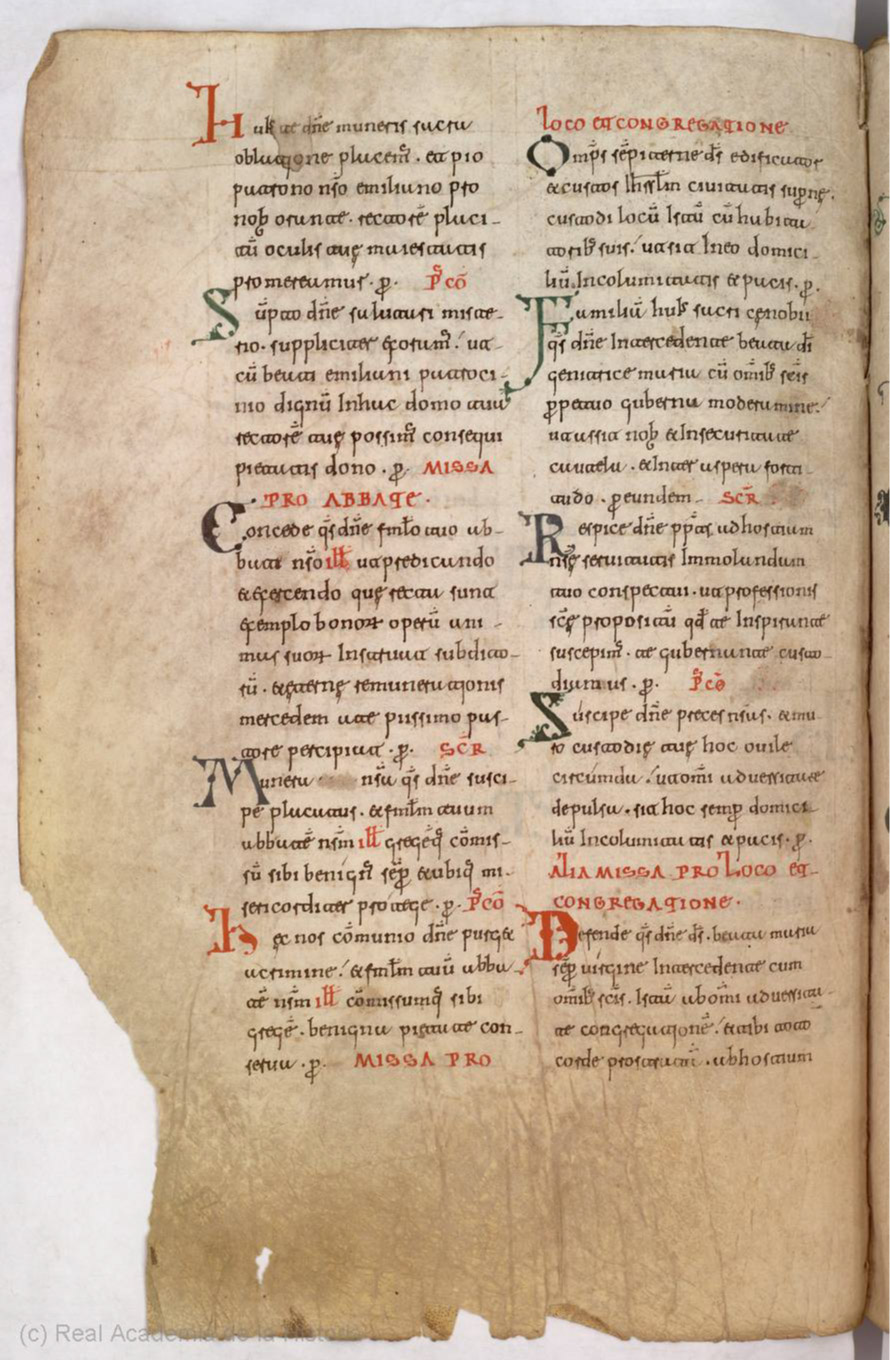 Huiꝰ te dn̄e muneris sacra
oblatione placem̄. et pio
patrono nr̄o emiliano pro
nob̄ orante. rectorē placi-
tū oculis tuę maiestatis
promereamus. p̄. P̄cō
Sūpto dn̄e salutari miste-
rio. suppliciter ęxoram̄. ut
cū beati emiliani patroci-
nio dignū Inhac domo tua
rectorē tuę possim̄ consequi
pietatis dono. p̄. MISSA
PRO ABBATE.
Concede qs̄ dn̄e fmło tuo ab-
bati nr̄o ill̄ ut predicando
et ęxercendo quę recta sunt
ęxemplo bonoꝝ operū ani-
mus suoꝝ Instruat subdito-
rū. et ęternę remunerationis
mercedem a te piissimo pas-
tore percipiat. p̄. SCR̄
Munera nr̄a qs̄ dn̄e susci-
pe placatus. et fml̄m tuum
abbatē nr̄m ill̄ gregēq̄ cōmis-
sū sibi benign̄ sēp̄ et ubiq̄ mi-
sericorditer protege. p̄. P̄cō
Hęc nos cōmunio dn̄e purget
a crimine. et fml̄m tuū abba-
tē nr̄m ill̄ cōmissumq̄ sibi
gregē. benigna pietate con-
serua. p̄. MISSA PRO
LOCO ET CONGREGATIONE
Omp̄s sēpiterne ds̄ edificator
et custos Ihrl̄m ciuitatis suprnę.
custodi locū Istū cū habita
torib̄ suis. ut sit Ineo domici
liū Incolumitatis et pacis. p̄.
Familiā huiꝰ sacri cęnobii
qs̄ dn̄e Intercedente beata di̅
genitrice maria cū omīb̄ scīs
p̄petuo guberna moderamine.
ut assit nob̄ et Insecuritate
cautela. et Inter aspera forti
tudo. p̄ eundem. SCR̄
Respice dn̄e pp̄ti ad hostiam
nr̄ę seruitutis Immolandam
tuo conspectui. ut professionis
scę̄ propositū qd̄ te Inspirante
suscepim̄. te gubernante custo-
diamus. p̄. P̄cō
Suscipe dn̄e preces nr̄as. et mu
ro custodię tuę hoc ouile
circūmda. ut omi̅ aduersitate
depulsa. sit hoc semp̄ domici
liū Incolumitatis et pacis. p̄.
ALIA MISSA PRO LOCO ET
CONGREGATIONE.
Defende qs̄ dn̄e ds̄. beata maria
sēp̄ uirgine Intercedente cum
omīb̄ scīs. Istā ab omi̅ aduersita-
te congregationē. et tibi toto
corde prostratā. ab hostium